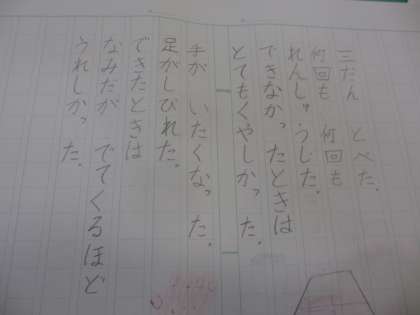 三だん とべた。
何回も 何回も
れんしゅうした。
できなかったときは
とてもくやしかった。
手が いたくなった。
足がしびれた。
できたときは
なみだが でてくるほど
うれしかった。